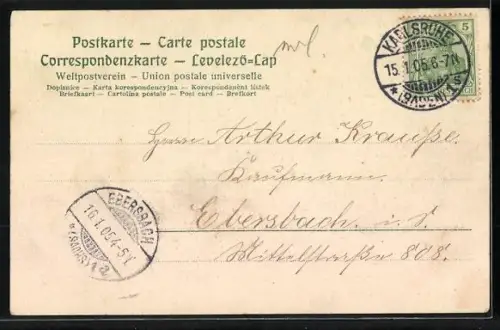 Postkarte – Carte postale
Correspondenzkarte – Levelező-Lap
Weltpostverein – Union postale universelle
Dopisnice – Karta korespondencyjna – Korespondenční lístek
Briefkaart – Cartolina postale – Post card – Brefkort
KARLSRUHE
15.1.05.6-7N
*(BADEN)1s
5
Herrn Arthur Krauße
Kaufmann.
Ebersbach i. S.
Mittelstraße 808.
EBERSBACH
16.1.05.4-5N
*(SACHS)1a